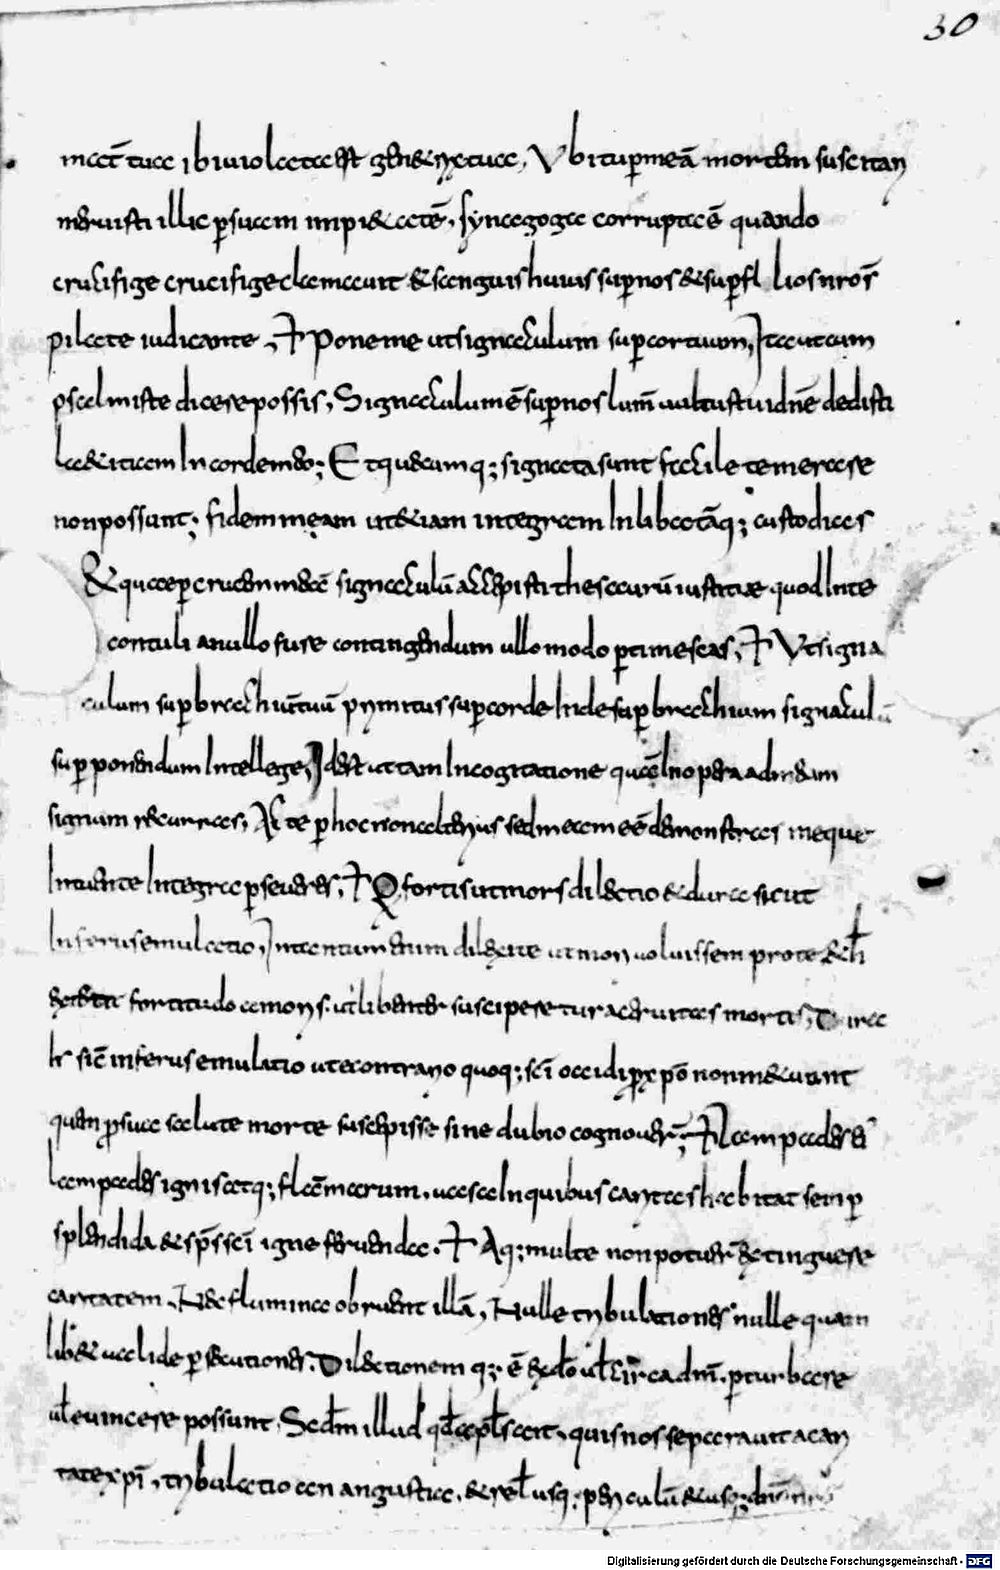 30
mat̄ tua ibi uiolata est genetrix tua, Ubi tu p meā mortem suscitari
meruisti illic p suam impietatē, synagoga corrupta ē quando
crucifige crucifige clamauit & sanguis huius sup nos & sup filios nrōs
pilate iudicante, Pone me ut signaculum sup cor tuum, Ita ut cum
psalmiste dicere possis, Signaculum ē sup nos lumē uultus tui dnē dedisti
laetitiam In corde meo; Et quecumq; signata sunt facile temerare
non possunt; fidem meam ut etiam integram In libertāq; custodias
& quae p crucem meā signaculū accepisti thesaurū iustitiae quod In te
contuli a nullo fure contingendum ullo modo ptimescas, Ut signa
culum sup brachiū tuū prius sup corde Inde sup brachium signaculū
sup ponendum Intellege, Id est ut tam In cogitatione quā In opera ad me dam
signum recurras, Ac te p hoc non alterius sed meam eē demonstras meque
Intuente Integra pseueres, Q, fortis ut mors dilectio & dura sicut
Inferus emulatio, In tantum enim dilexi te ut mori uoluissem pro te &
fortitudo amoris. ut libenter suscipere tur aceruitas mortis, Dura
sic inferus emulatio ut e contrario quoq; sci occidi p xpo non metuant
quem p sua salute morte suscepisse sine dubio cognouer; Lampades ei
lampades ignis atq; flāmarum, uasa In quibus caritas habitat semp
splendida & sps sci igne feruenda. Aq; multe non potuer extinguere
caritatem, Nec flumina obruent illā, Nulle tribulationes nulle quam
libet ualide psecutiones, Dilectionem q; ē circa dm̄. pturbare
ul euincere possunt, Scdm illud qd apls ait, quis nos separauit a cari
tate xpi, tribulatio an angustia, & rel usq; periculū & usq;
Digitalisierung gefördert durch die Deutsche Forschungsgemeinschaft - DFG